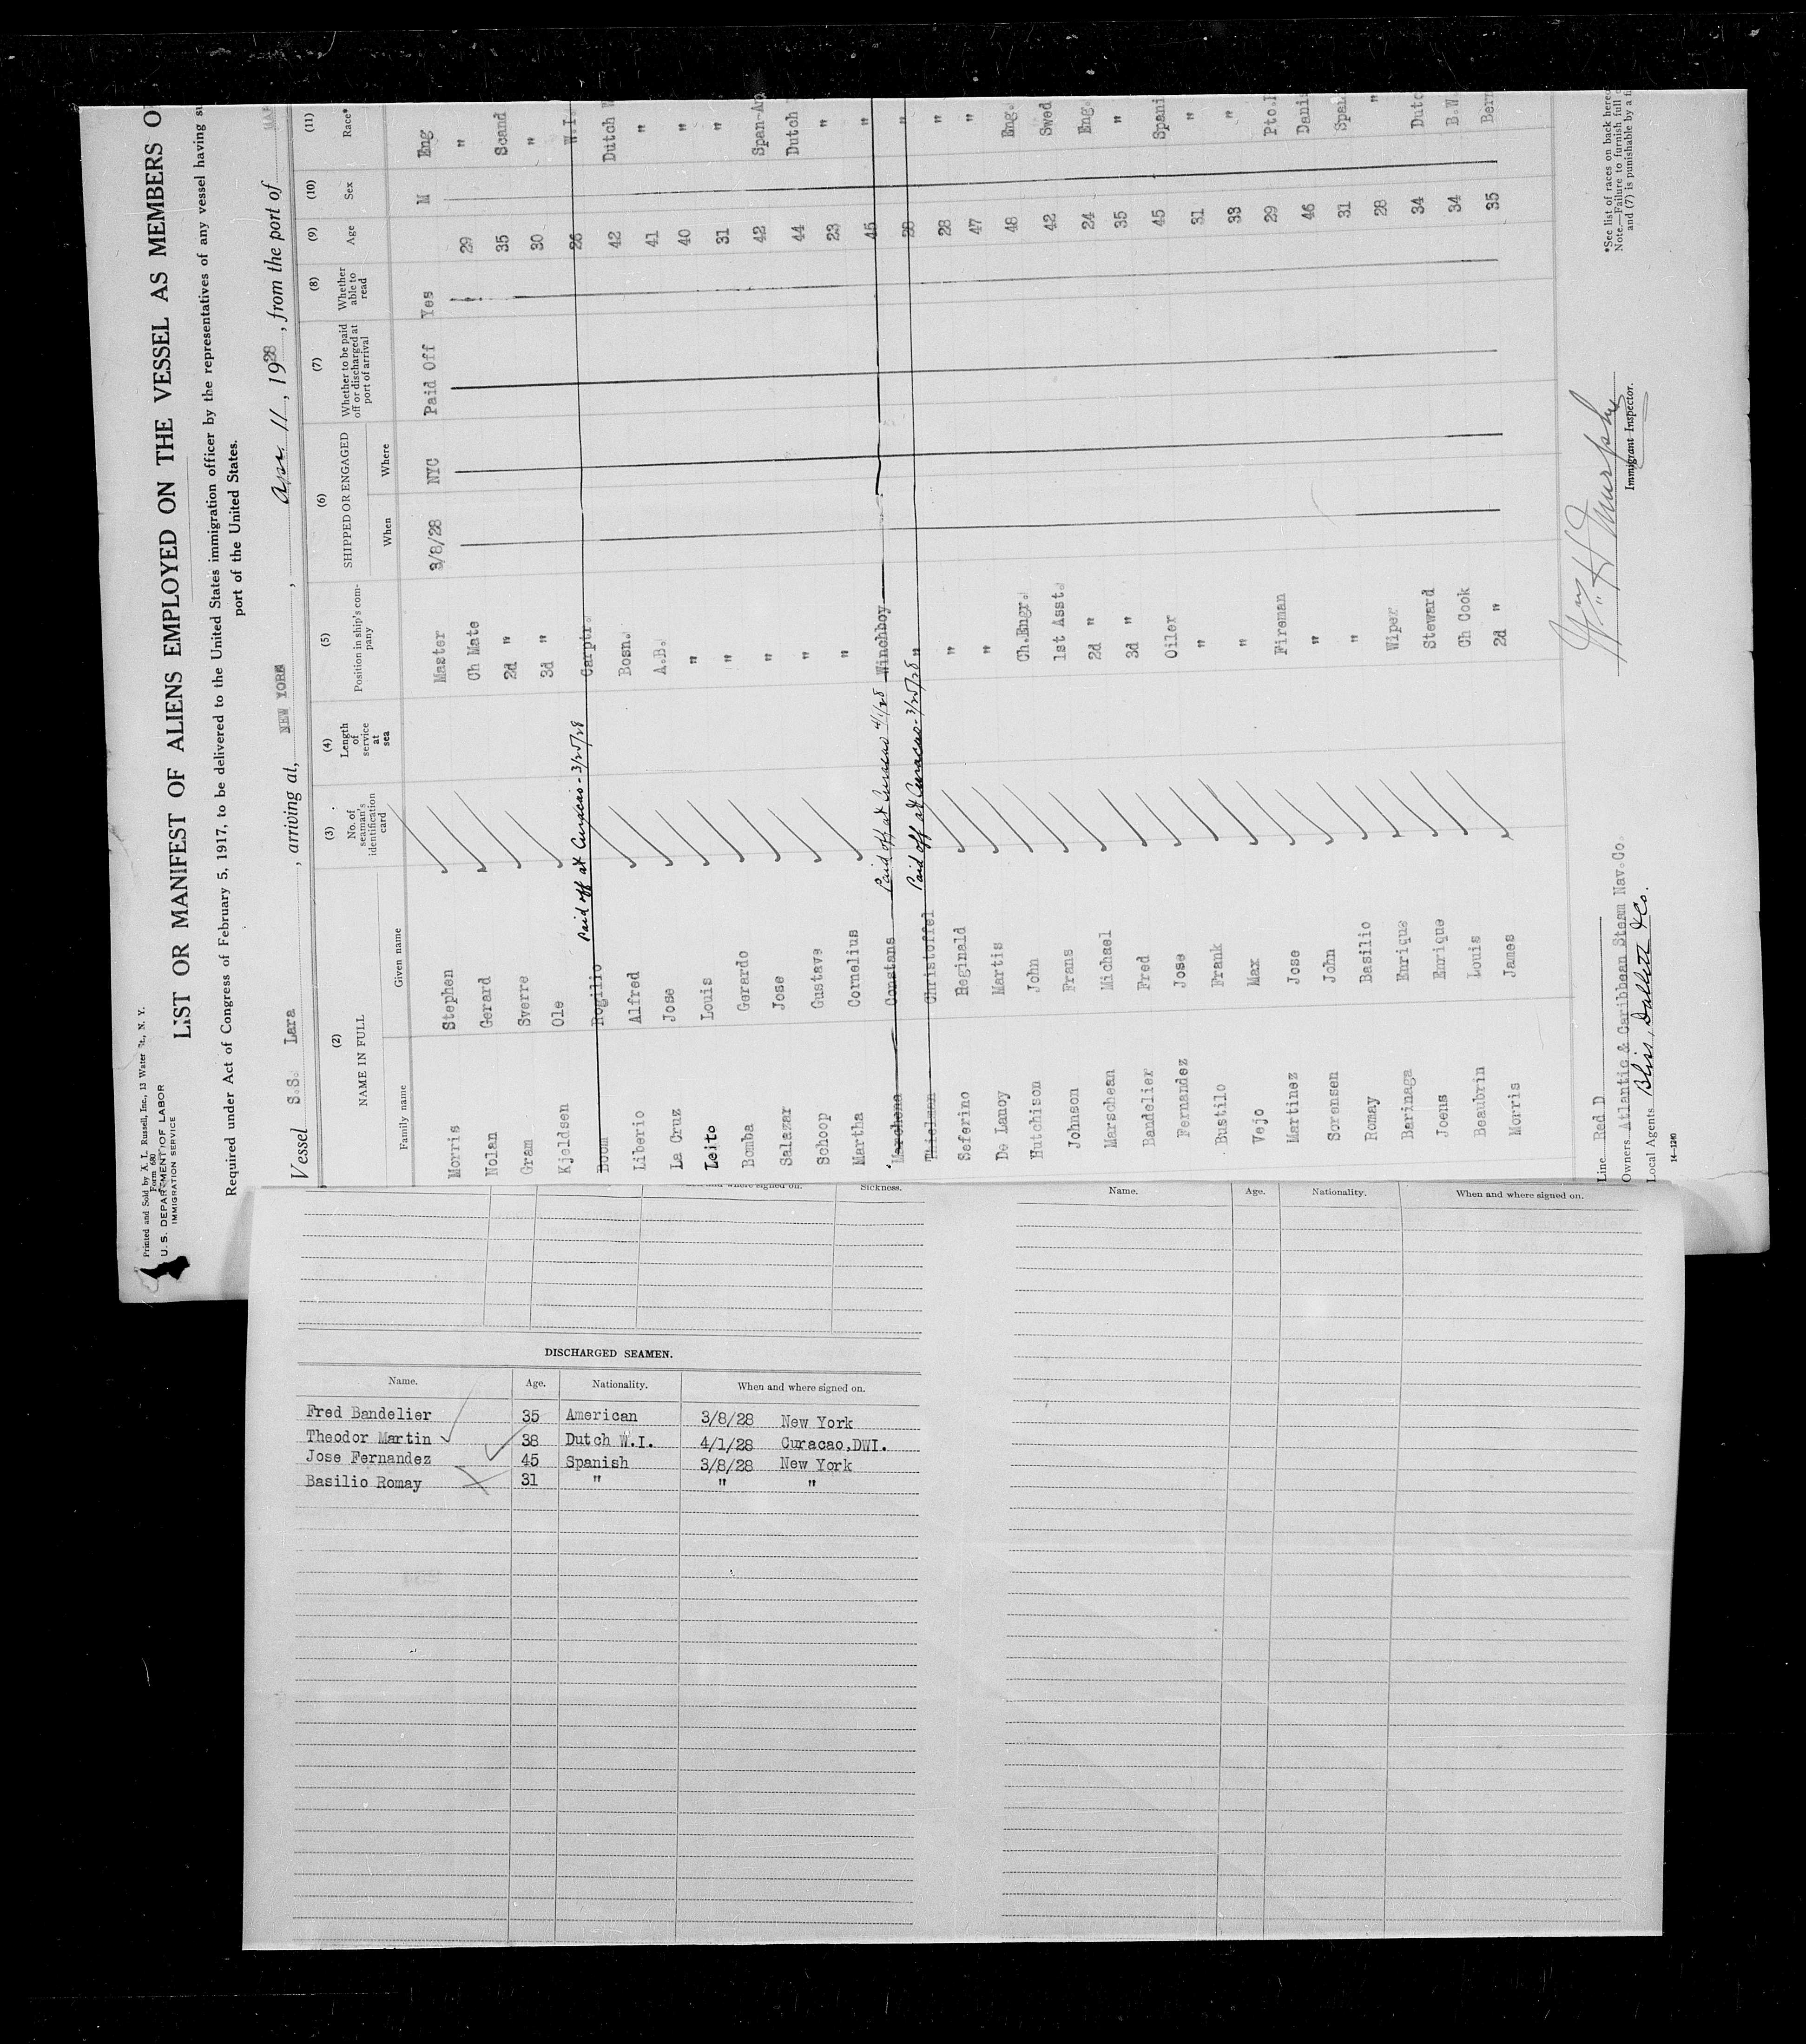 Printed and Sold by A. L. Russell, Inc., 13 Water St., N. Y.
Form 680
U. S. DEPARTMENT OF LABOR
IMMIGRATION SERVICE
LIST OR MANIFEST OF ALIENS EMPLOYED ON THE VESSEL AS MEMBERS O
Required under Act of Congress of February 5, 1917, to be delivered to the United States immigration officer by the representatives of any vessel having su
port of the United States.
Vessel S.S. Lara, arriving at, NEW YORK, Apr. 11, 1928, from the port of MAR
(2) (3) (4) (5) (6) (7) (8) (9) (10) (11)
NAME IN FULL No. of seaman's identification card Length of service at sea Position in ship's company SHIPPED OR ENGAGED Whether to be paid off or discharged at port of arrival Whether able to read Age Sex Race*
Family name Given name When Where
Morris Stephen Master 3/8/28 NYC Paid Off Yes M Eng
Nolan Gerard Ch Mate 29 "
Gram Sverre 2d " 35 Scand
Kjeldsen Ole 3d " 30 "
Boom Rogilio Paid off at Curacao - 3/25/28 Carptr. 26 W.I.
Liberio Alfred Bosn. 42 Dutch W
La Cruz Jose A.B. 41 "
Leito Louis " 40 "
Bomba Gerardo " 31 "
Salazar Jose " 42 Span-Am
Schoop Gustave " 44 Dutch
Martha Cornelius " 23 "
Marchena Constans Paid off at Curacao 4/1/28 Winchboy 45 "
Thielman Christoffel Paid off at Curacao - 3/25/28 " 28 "
Seferino Reginald " 28 "
De Lanoy Martis " 47 "
Hutchison John Ch.Engr. 48 Eng.
Johnson Frans 1st Asst. 42 Swed
Marschean Michael 2d " 24 Eng.
Bandelier Fred 3d " 35 "
Fernandez Jose Oiler 45 Spani
Bustilo Frank " 31 "
Vejo Max " 33 "
Martinez Jose Fireman 29 Pto.
Sorensen John " 46 Danis
Romay Basilio " 31 Span
Barinaga Enrique Wiper 28 "
Joens Enrique Steward 34 Dutc
Beaubrin Louis Ch Cook 34 B.W.
Morris James 2d " 35 Berm
Line Red D
Owners Atlantic & Caribbean Steam Nav. Co
Local Agents Bliss, Dallett & Co.
14—1240
Wm. H Murphy
Immigrant Inspector.
*See list of races on back hereo
Note.—Failure to furnish full o
and (7) is punishable by a fi
and where signed on. Sickness.
DISCHARGED SEAMEN.
Name. Age. Nationality. When and where signed on.
Fred Bandelier 35 American 3/8/28 New York
Theodor Martin 38 Dutch W.I. 4/1/28 Curacao,DWI.
Jose Fernandez 45 Spanish 3/8/28 New York
Basilio Romay 31 " " "
Name. Age. Nationality. When and where signed on.